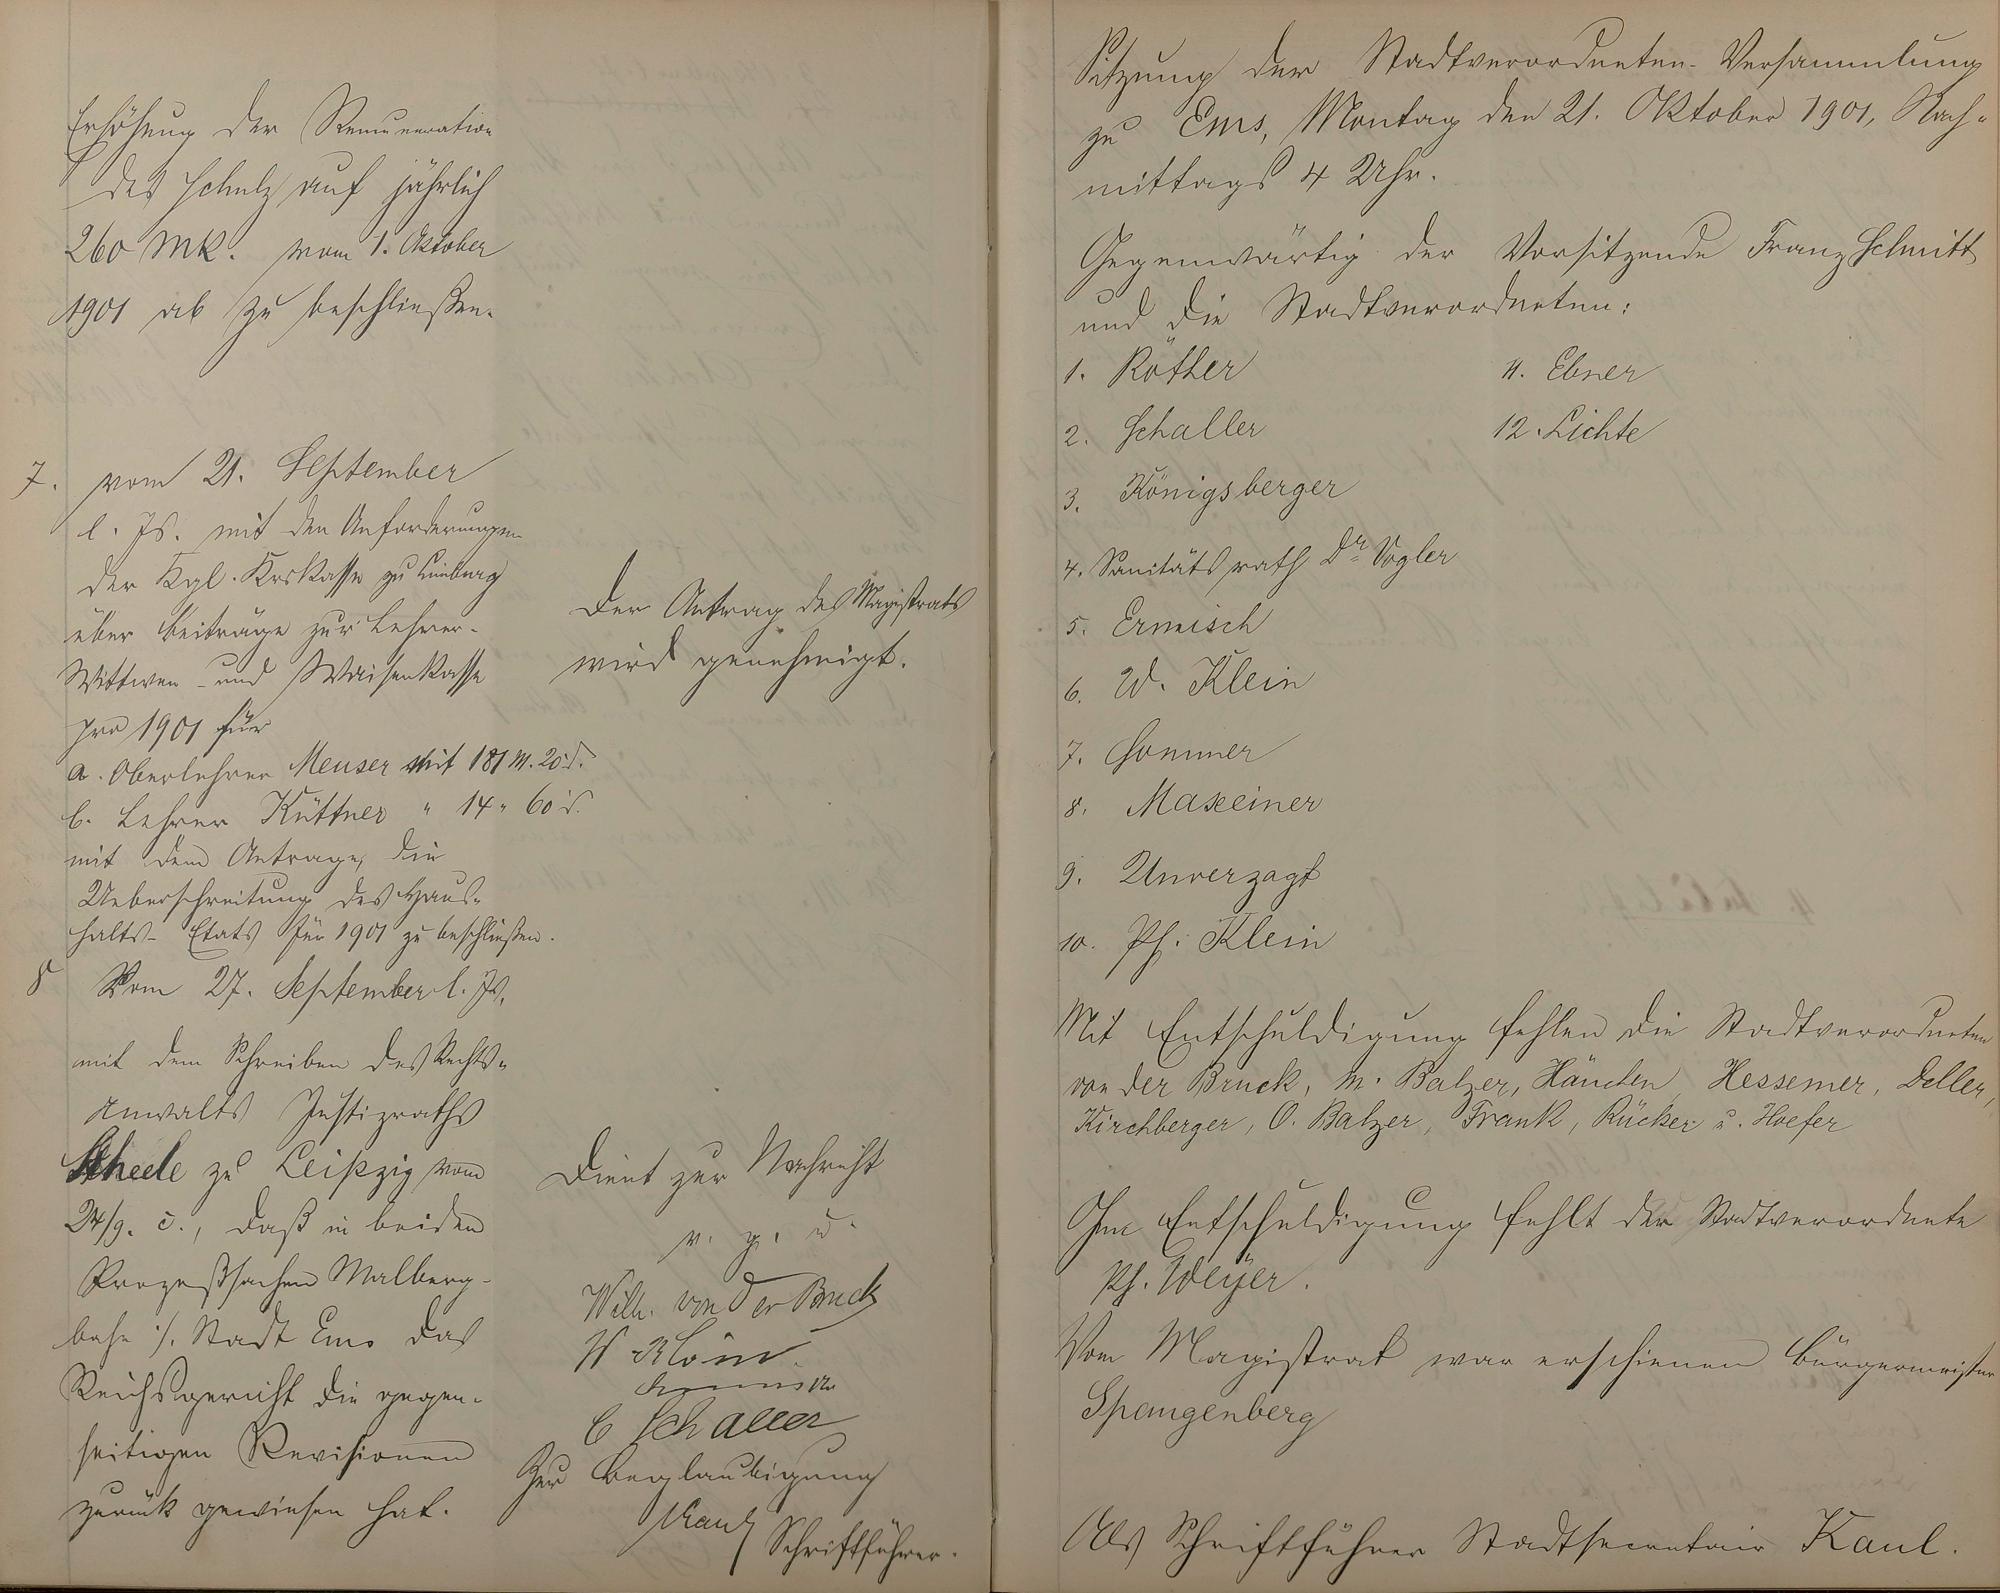 Erhöhung der Remuneration
des Schulz auf jährlich
260 Mk. vom 1. Oktober
1901 ab zu beschließen.
7. vom 21. September
l. Js. mit den Anforderungen
der Kgl. Krskasse zu Limburg
über Beiträge zur Lehrer-
Wittwen- und Waisenkasse
pro 1901 für
a. Oberlehrer Meuser mit 181 M. 20 d.
b. Lehrer Küttner " 14 " 60 d.
mit dem Antrage, die
Ueberschreitung des Haus-
halts-Etats für 1901 zu beschließen.
Der Antrag des Magistrats
wird genehmigt.
8 Vom 27. September l. Js.
mit dem Schreiben des Rechts-
anwalts Justizraths
Scheele zu Leipzig vom
24/9. c., daß in beiden
Prozeßsachen Malberg-
bahn ./. Stadt Ems das
Reichsgericht die gegen-
seitigen Revisionen
zurück gewiesen hat.
Dient zur Nachricht
v. g. u.
Wilh. von der Bruck
W Klein
C Schaller
Zur Beglaubigung
Kaul
Schriftführer.
Sitzung der Stadtverordneten-Versammlung
zu Ems, Montag den 21. Oktober 1901, Nach-
mittags 4 Uhr.
Gegenwärtig der Vorsitzende Franz Schmitt
und die Stadtverordneten:
1. Röther
2. Schaller
3. Königsberger
4. Sanitätsrath Dr. Vogler
5. Ermisch
6. W. Klein
7. Sommer
8. Maxeiner
9. Unverzagt
10. Ph. Klein
11. Ebner
12. Lichte
Mit Entschuldigung fehlen die Stadtverordneten
von der Bruck, M. Balzer, Hänchen, Hessemer, Deller,
Kirchberger, O. Balzer, Frank, Rücker u. Hoefer
Ohne Entschuldigung fehlt der Stadtverordnete
Ph. Weyer.
Vom Magistrat war erschienen Bürgermeister
Spangenberg
Als Schriftführer Stadtsecretair Kaul.